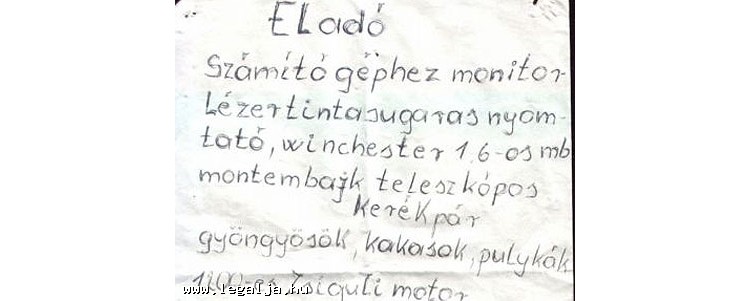 ELadó
Számító géphez monitor
Lézertintasugaras nyom-
tató, winchester 1,6-os mb
montembajk teleszkópos
kerékpár
gyöngyösök, kakasok, pulykák
1200-es Zsiguli motor
www.legalja.hu